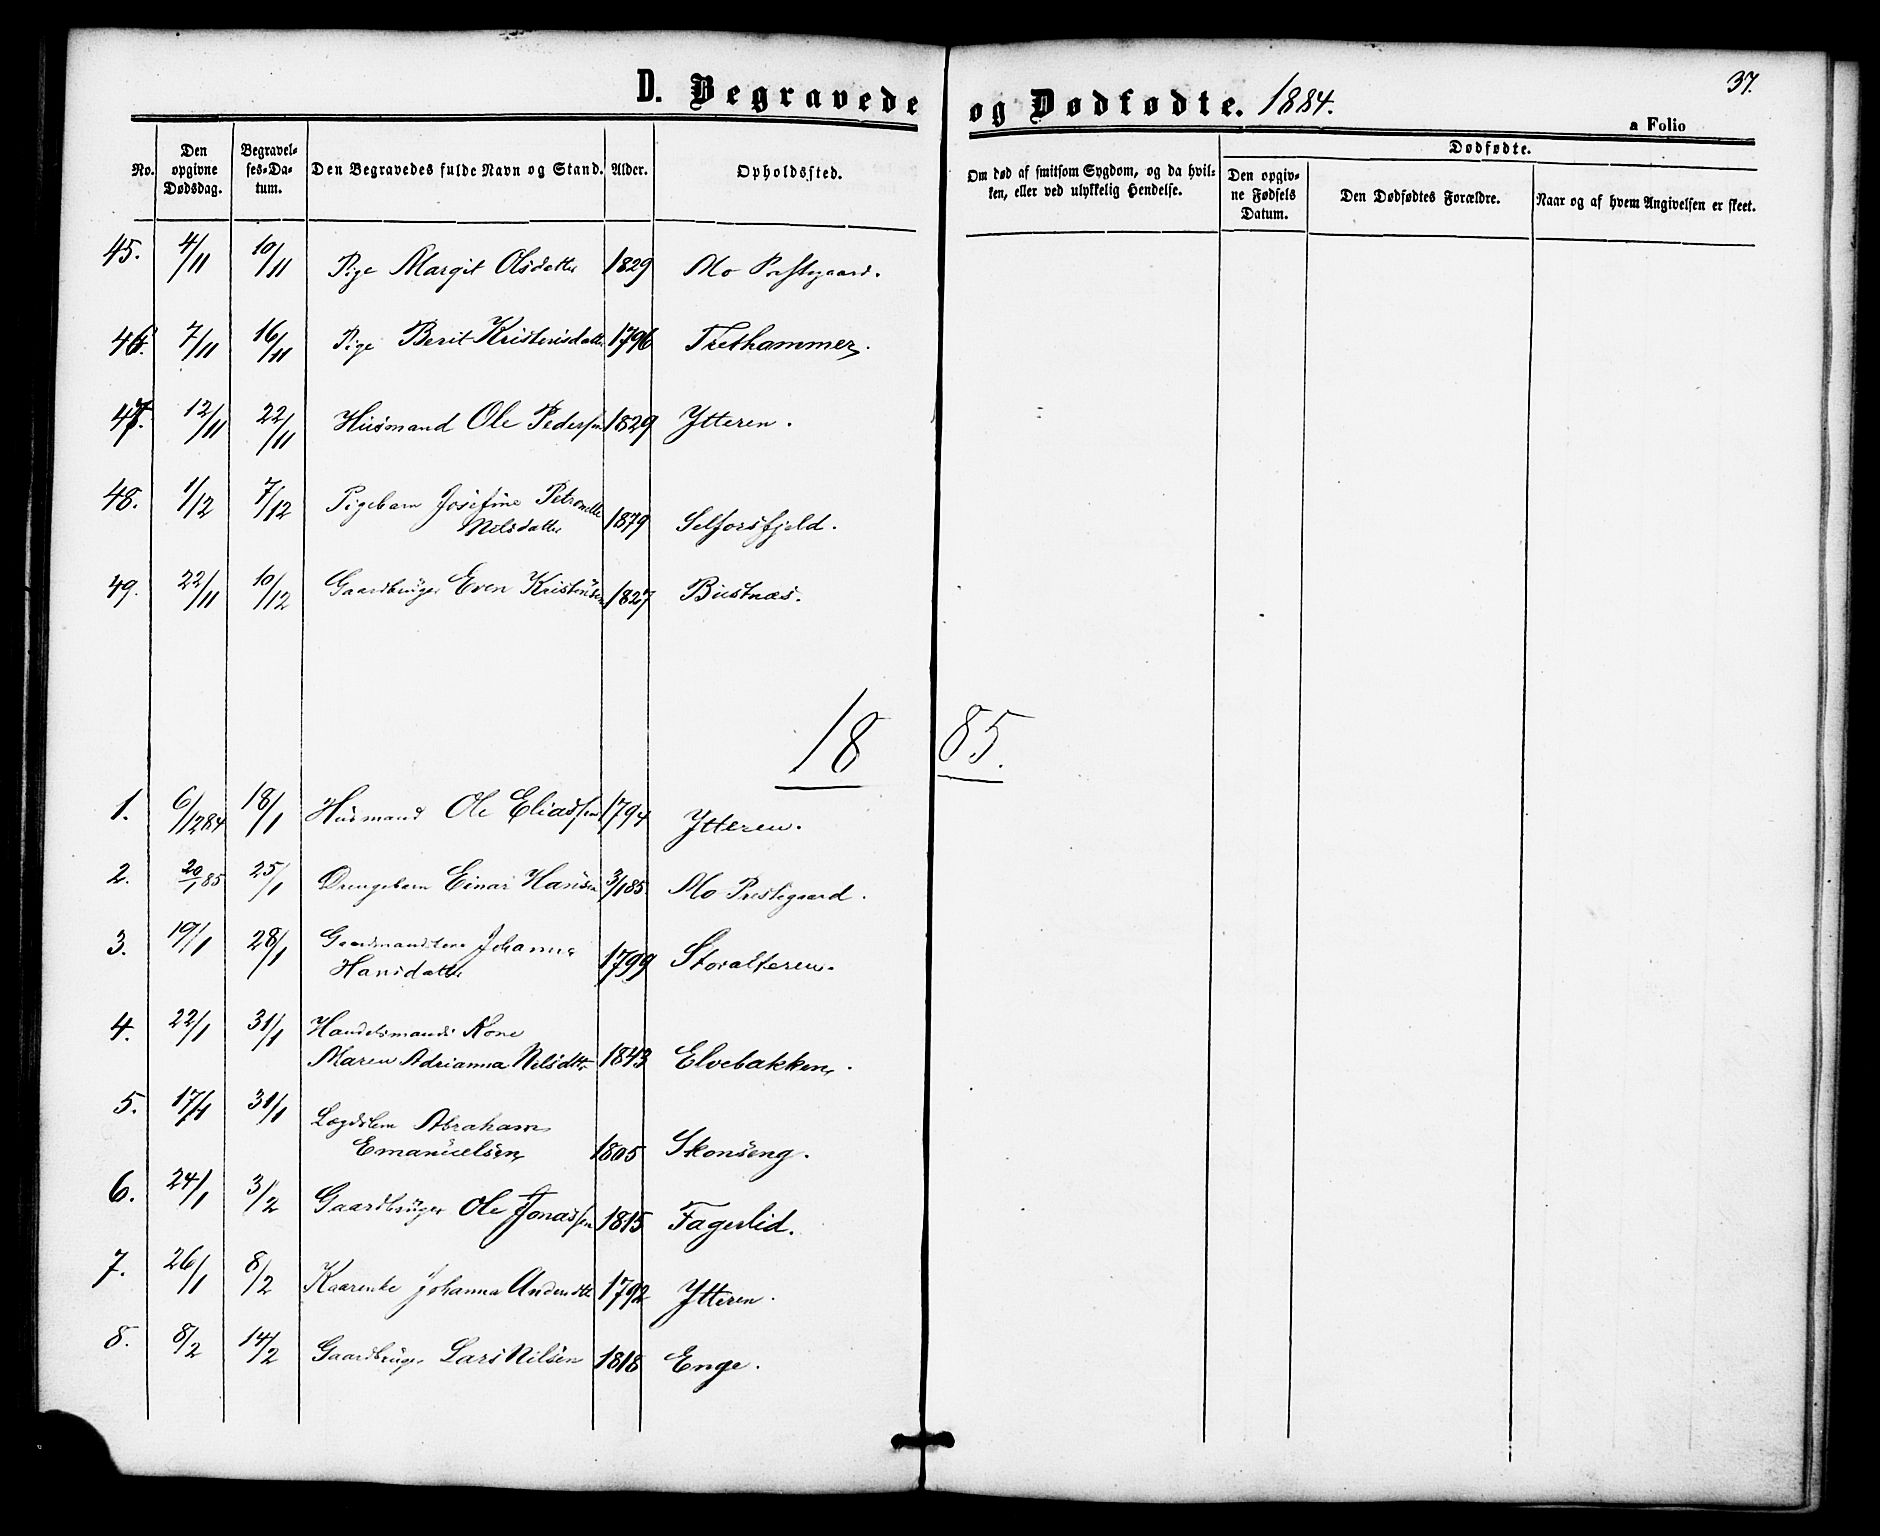 D. Begravede og Dødfødte. 1884. 37.
a Folio
No. Den opgivne Dødsdag. Begravelses-Datum. Den Begravedes fulde Navn og Stand. Alder. Opholdssted. Om død af smitsom Sygdom, og da hvilken, eller ved ulykkelig Hendelse. Dødfødte. Den opgivne Fødsels Datum. Den Dødfødtes Forældre. Naar og af hvem Angivelsen er skeet.
45. 4/11 10/11 Pige Margit Olsdatter 1829 Mo Prestegaard.
46. 7/11 16/11 Pige Berit Kristensdatter 1796 Trethammer.
47. 12/11 22/11 Husmand Ole Pedersen 1829 Ytteren.
48. 1/12 7/12 Pigebarn Josefine Petronelle
Nilsdatter 1879 Selforsfjeld.
49. 22/11 10/12 Gaardbruger Even Kristensen 1827 Bustnæs.
1885.
1. 6/12 84 18/1 Husmand Ole Eliassen 1794 Ytteren.
2. 20/1 85 25/1 Drengebarn Einar Hansen 3/1 85. Mo Prestegaard.
3. 19/1 28/1 Johanna
Hansdatter 1799 Storalteren.
4. 22/1 31/1 Handelsmands Kone
Maren Adrianna Nilsdtr 1843 Elvebakken.
5. 17/1 31/1 Lægdslem Abraham
Emanuelsen 1805 Skonseng.
6. 24/1 3/2 Gaardbruger Ole Jonassen 1815 Fagerlid.
7. 26/1 8/2 Kaarenke Johanna Andersdtr 1792 Ytteren.
8. 8/2 14/2 Gaardbruger Lars Nilsen 1818 Enge.